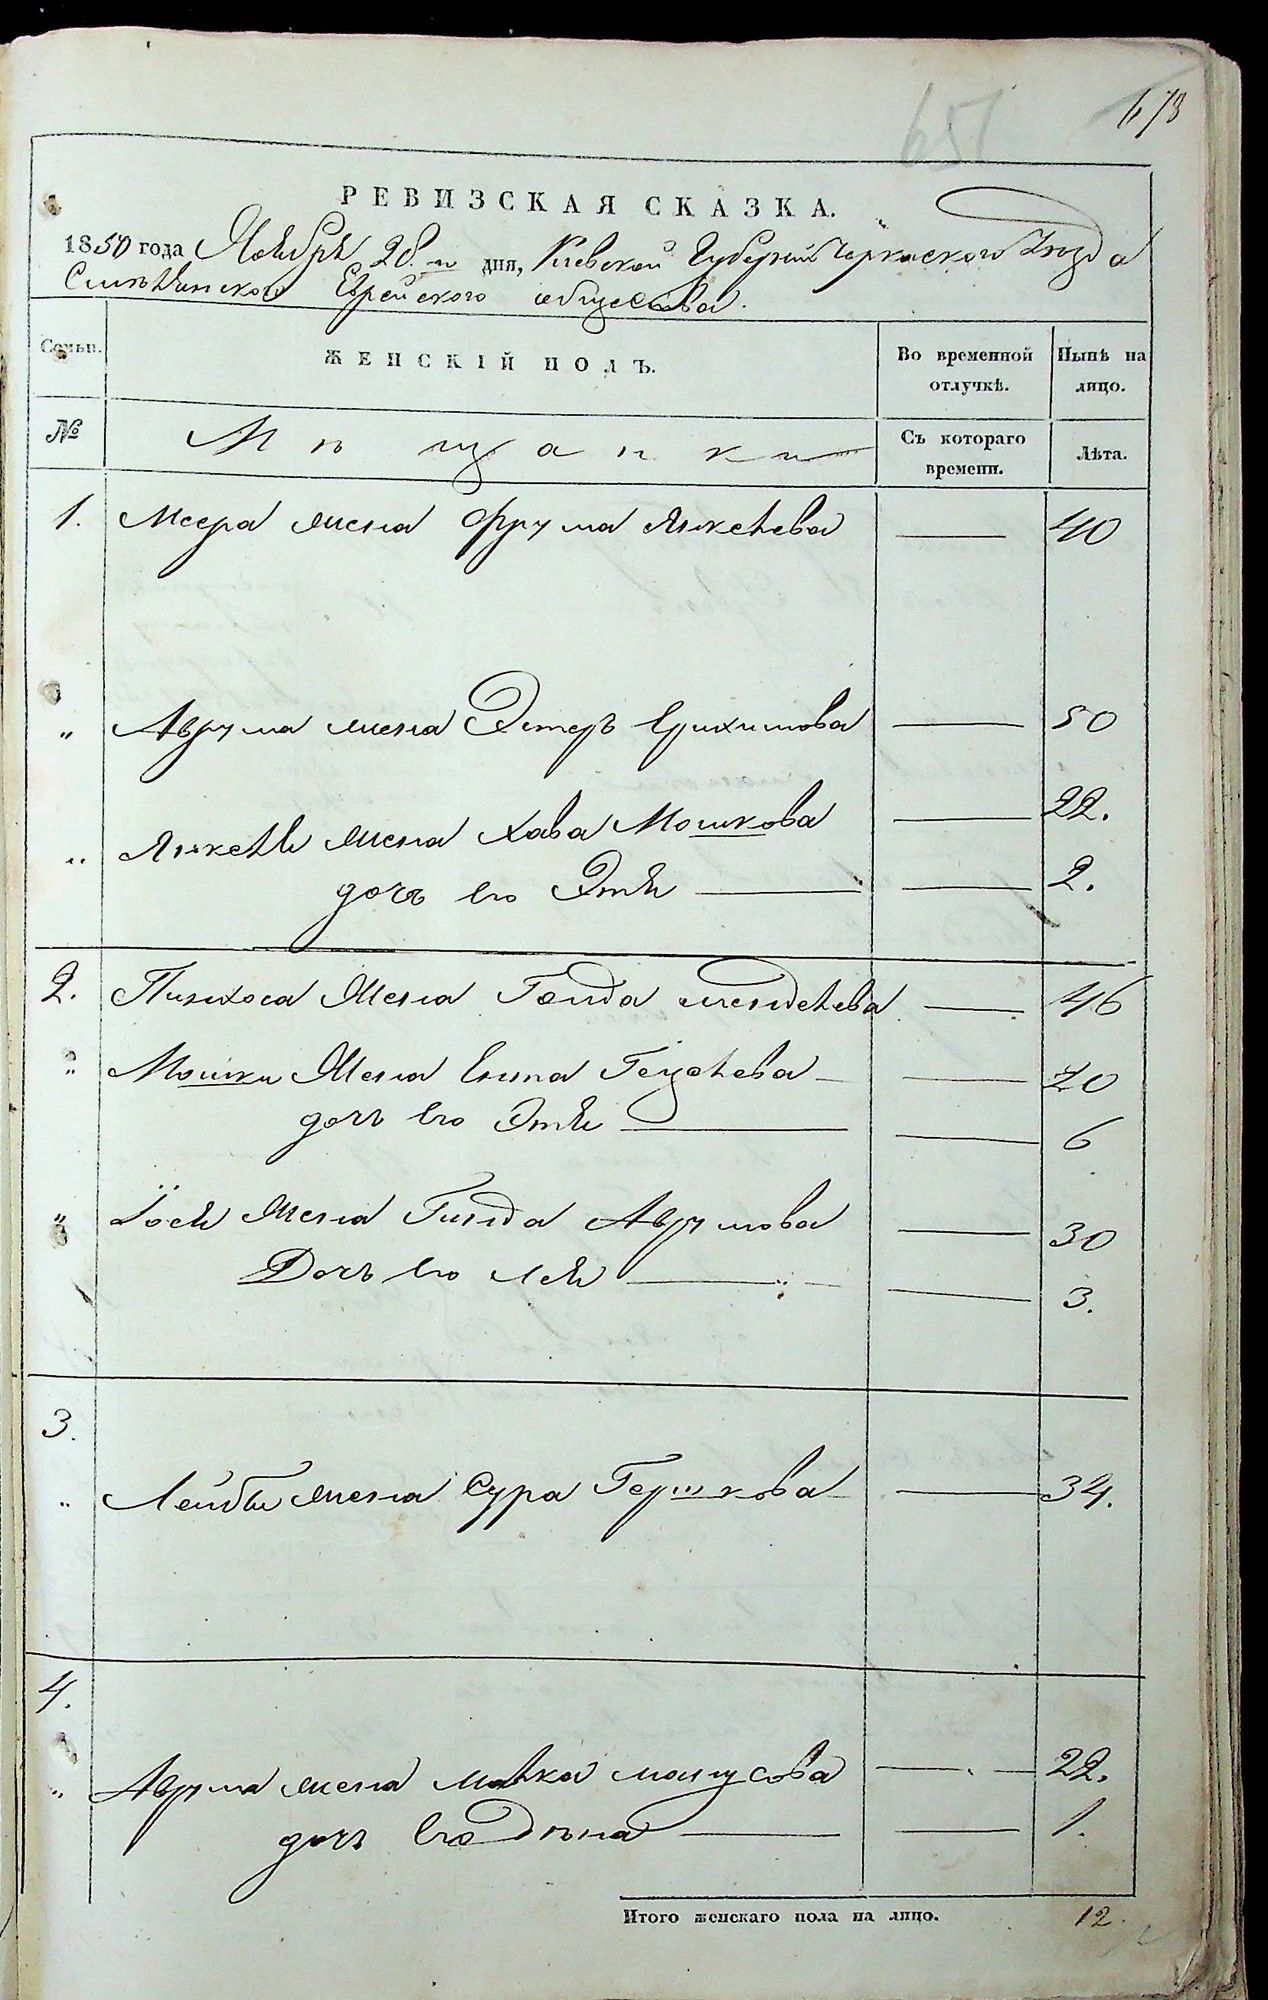 651
678
РЕВИЗСКАЯ СКАЗКА.
1850 года Ноября 28.го дня, Киевской Губерніи Черкаскаго Уезда
Еврейского общества.
Семьи.
ЖЕНСКІЙ ПОЛЪ.
Во временной отлучкѣ.
Нынѣ на лицо.
№
Мѣщанки
Съ котораго времени.
Лѣта.
1. Меера жена Фрума Янкелева — 40
„ Аврума жена Эстеръ — 50
„ Янкеля жена Хава Мошкова — 22.
дочь его Этя — 2.
2. Пинхоса жена Голда Менделева — 46
„ Мошки жена Елька — 20
дочь его Этя — 6
„ Іося жена Гинда Аврумова — 30
Дочь его Лея — 3.
3.
„ Лейбы жена Сура Гершкова — 34.
4.
„ Аврума жена Малка Манусова — 22.
дочь его — 1.
Итого женскаго пола на лицо. 12.